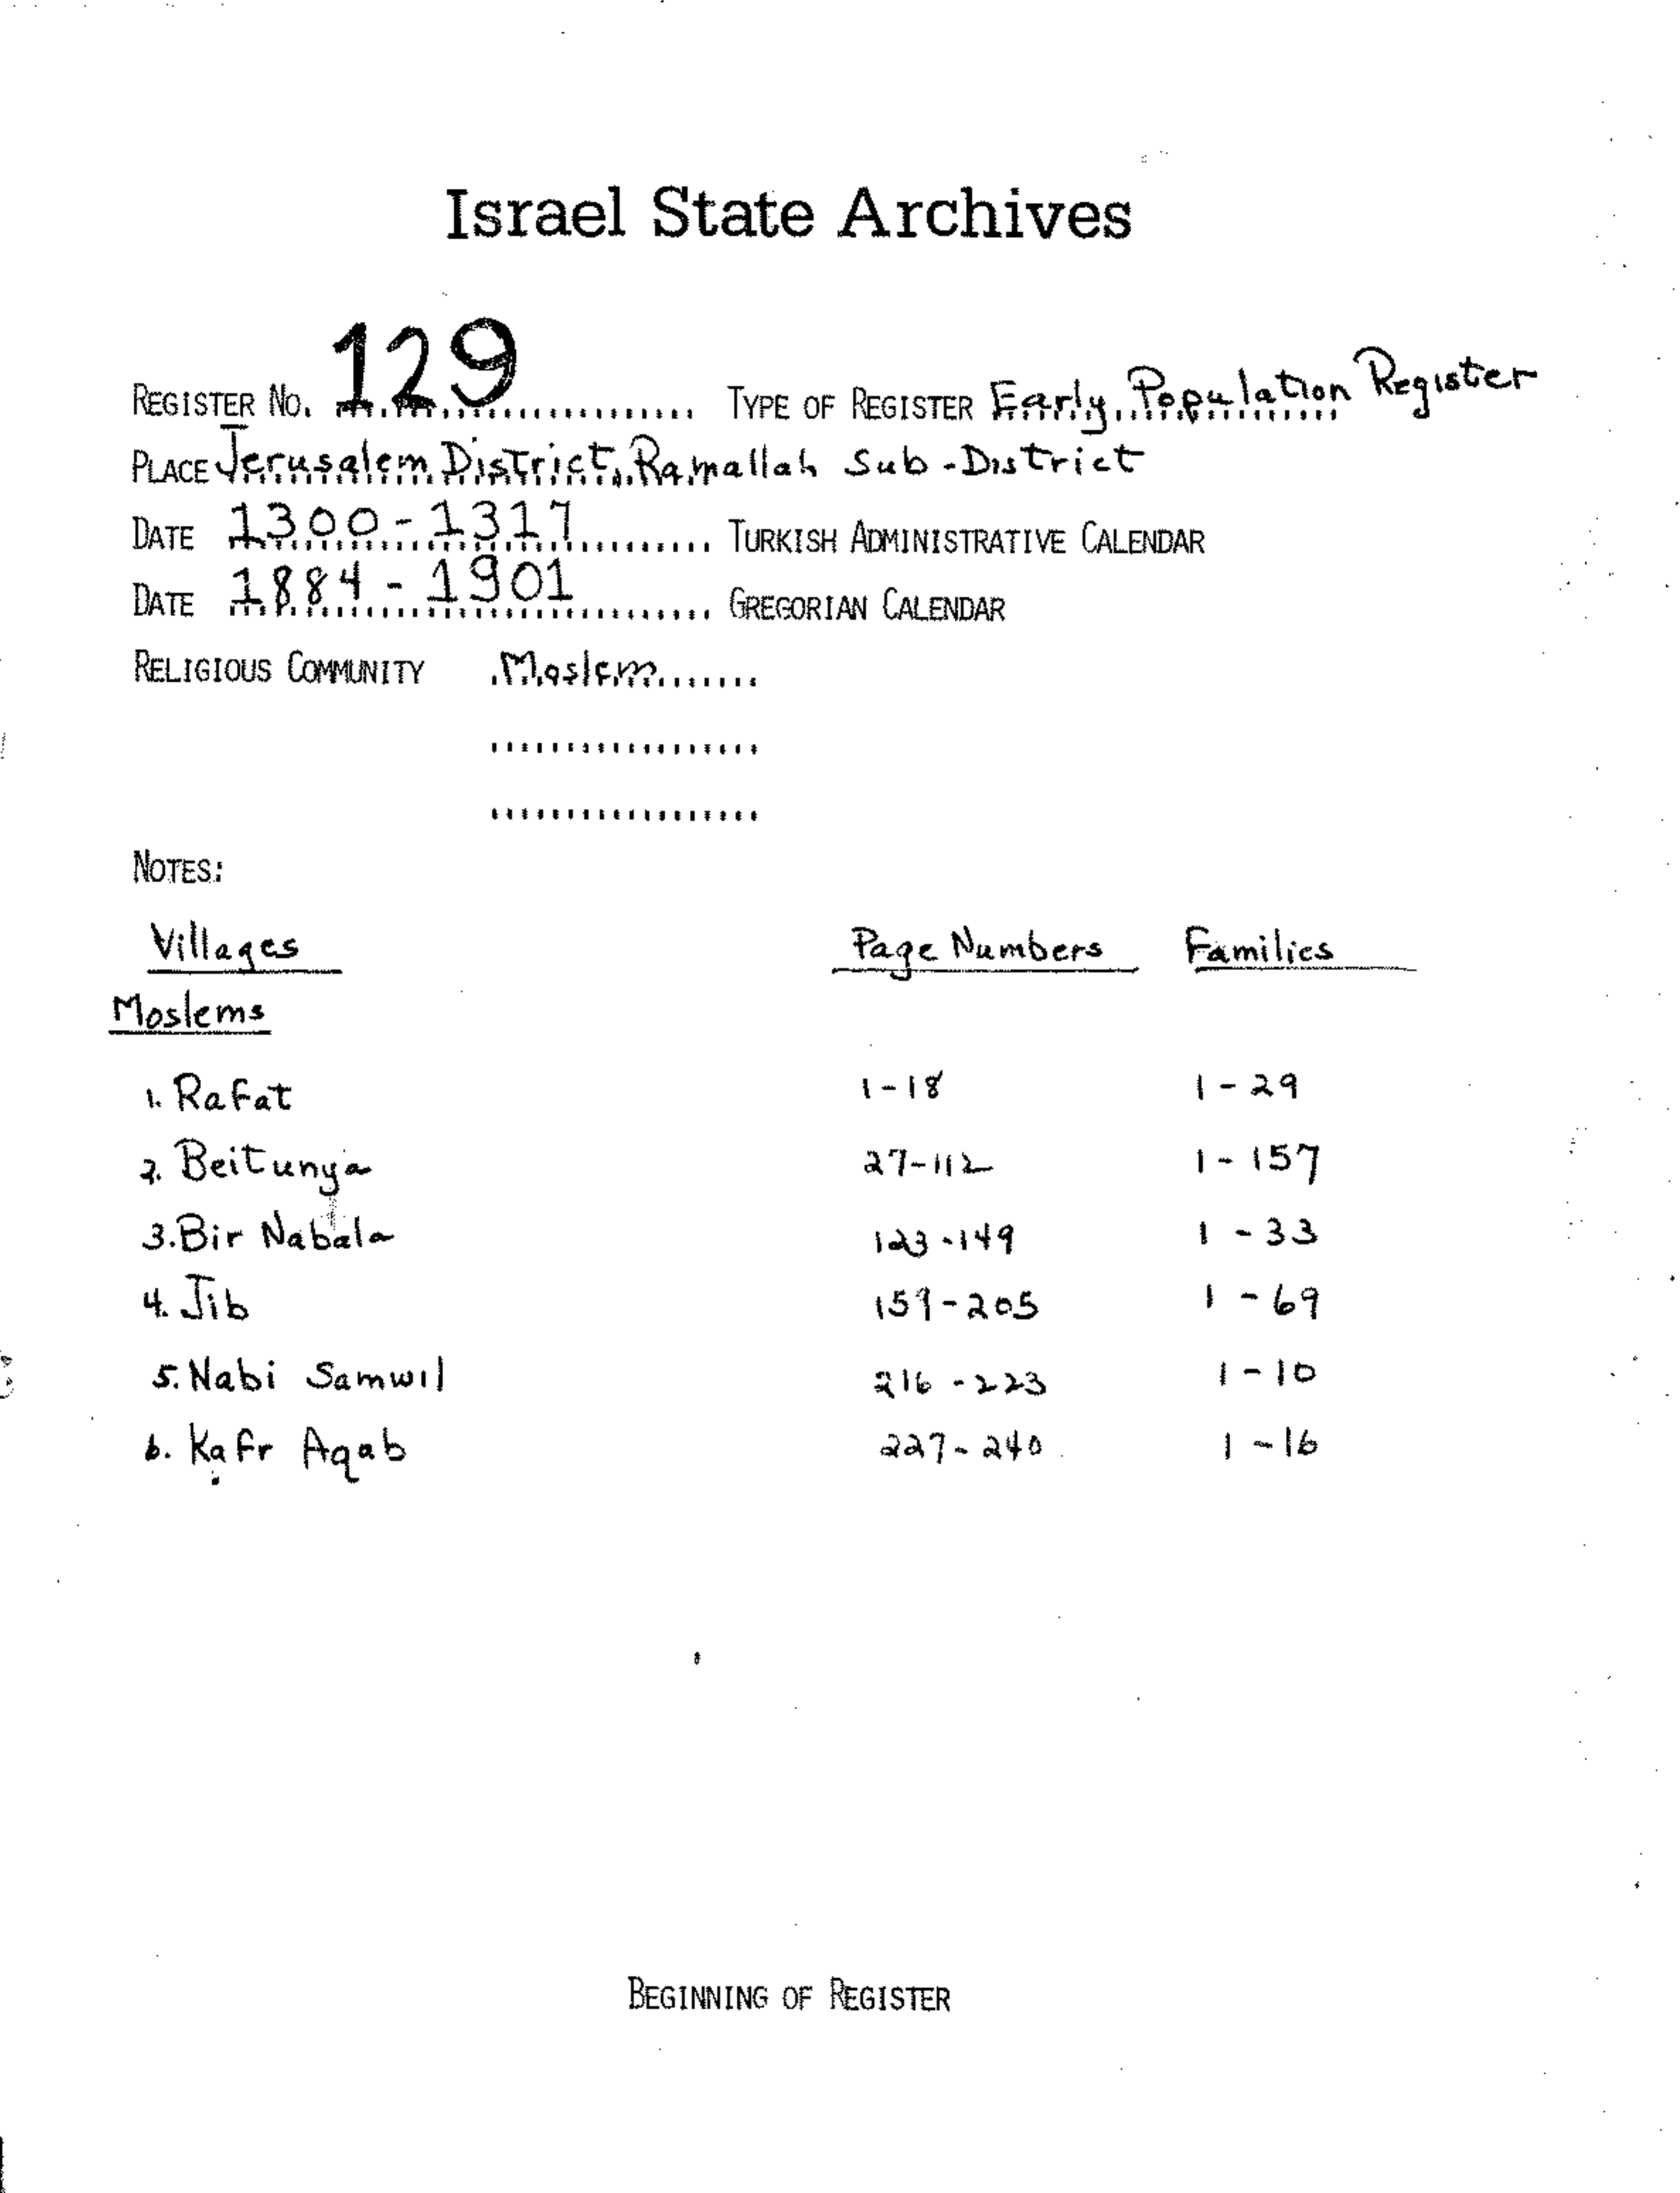 Israel State Archives
REGISTER NO. 129 TYPE OF REGISTER Early Population Register
PLACE Jerusalem District, Ramallah Sub-District
DATE 1300-1317 TURKISH ADMINISTRATIVE CALENDAR
DATE 1884-1901 GREGORIAN CALENDAR
RELIGIOUS COMMUNITY Moslem
NOTES:
Villages Page Numbers Families
Moslems
1. Rafat 1-18 1-29
2. Beitunya 27-112 1-157
3. Bir Nabala 123-149 1-33
4. Jib 159-205 1-69
5. Nabi Samwil 216-223 1-10
6. Kafr Aqab 227-240 1-16
BEGINNING OF REGISTER